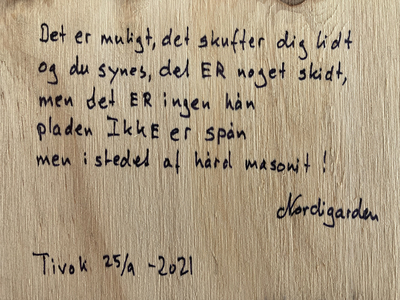 Det er muligt, det skuffer dig lidt
og du synes, det ER noget skidt,
men det ER ingen hån
pladen IKKE er spån
men i stedet af hård masonit !
Nordigarden
Tivoli 25/9 -2021